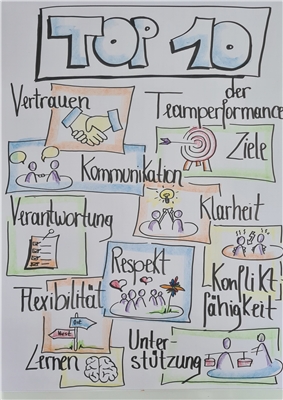 TOP 10
der
Teamperformance
Vertrauen
Ziele
Kommunikation
Verantwortung
Klarheit
Respekt
Konflikt
fähigkeit
Flexibilität
Lernen
Unter-
stützung